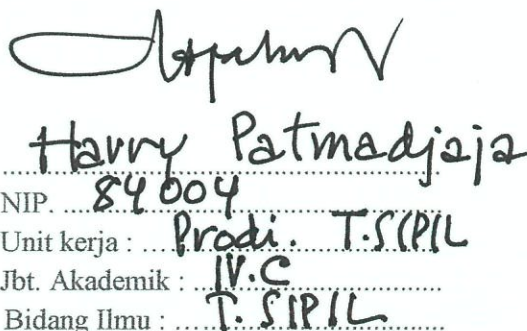 Harry Patmadjaja
NIP. 84004
Unit kerja : Prodi. T.SIPIL
Jbt. Akademik : IV.C
Bidang Ilmu : T. SIPIL